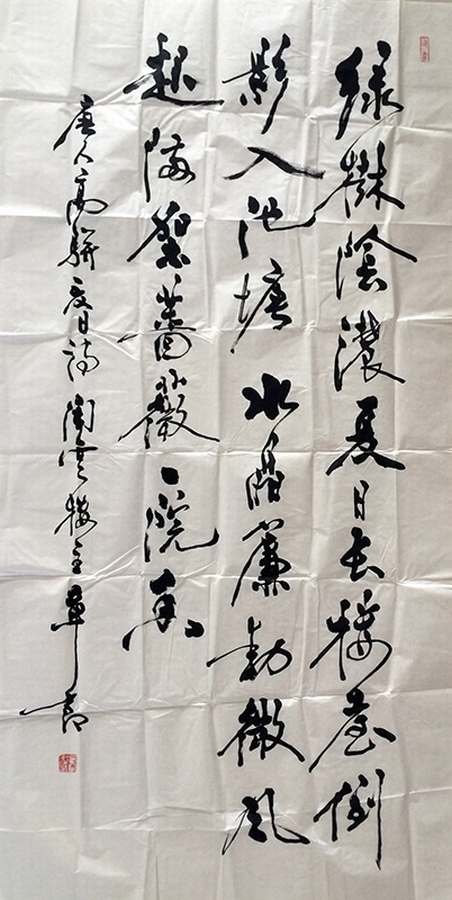 綠樹陰濃夏日長樓臺倒
影入池塘水晶簾動微風
起滿架薔薇一院香
唐人高駢夏日詩雲樓主草書